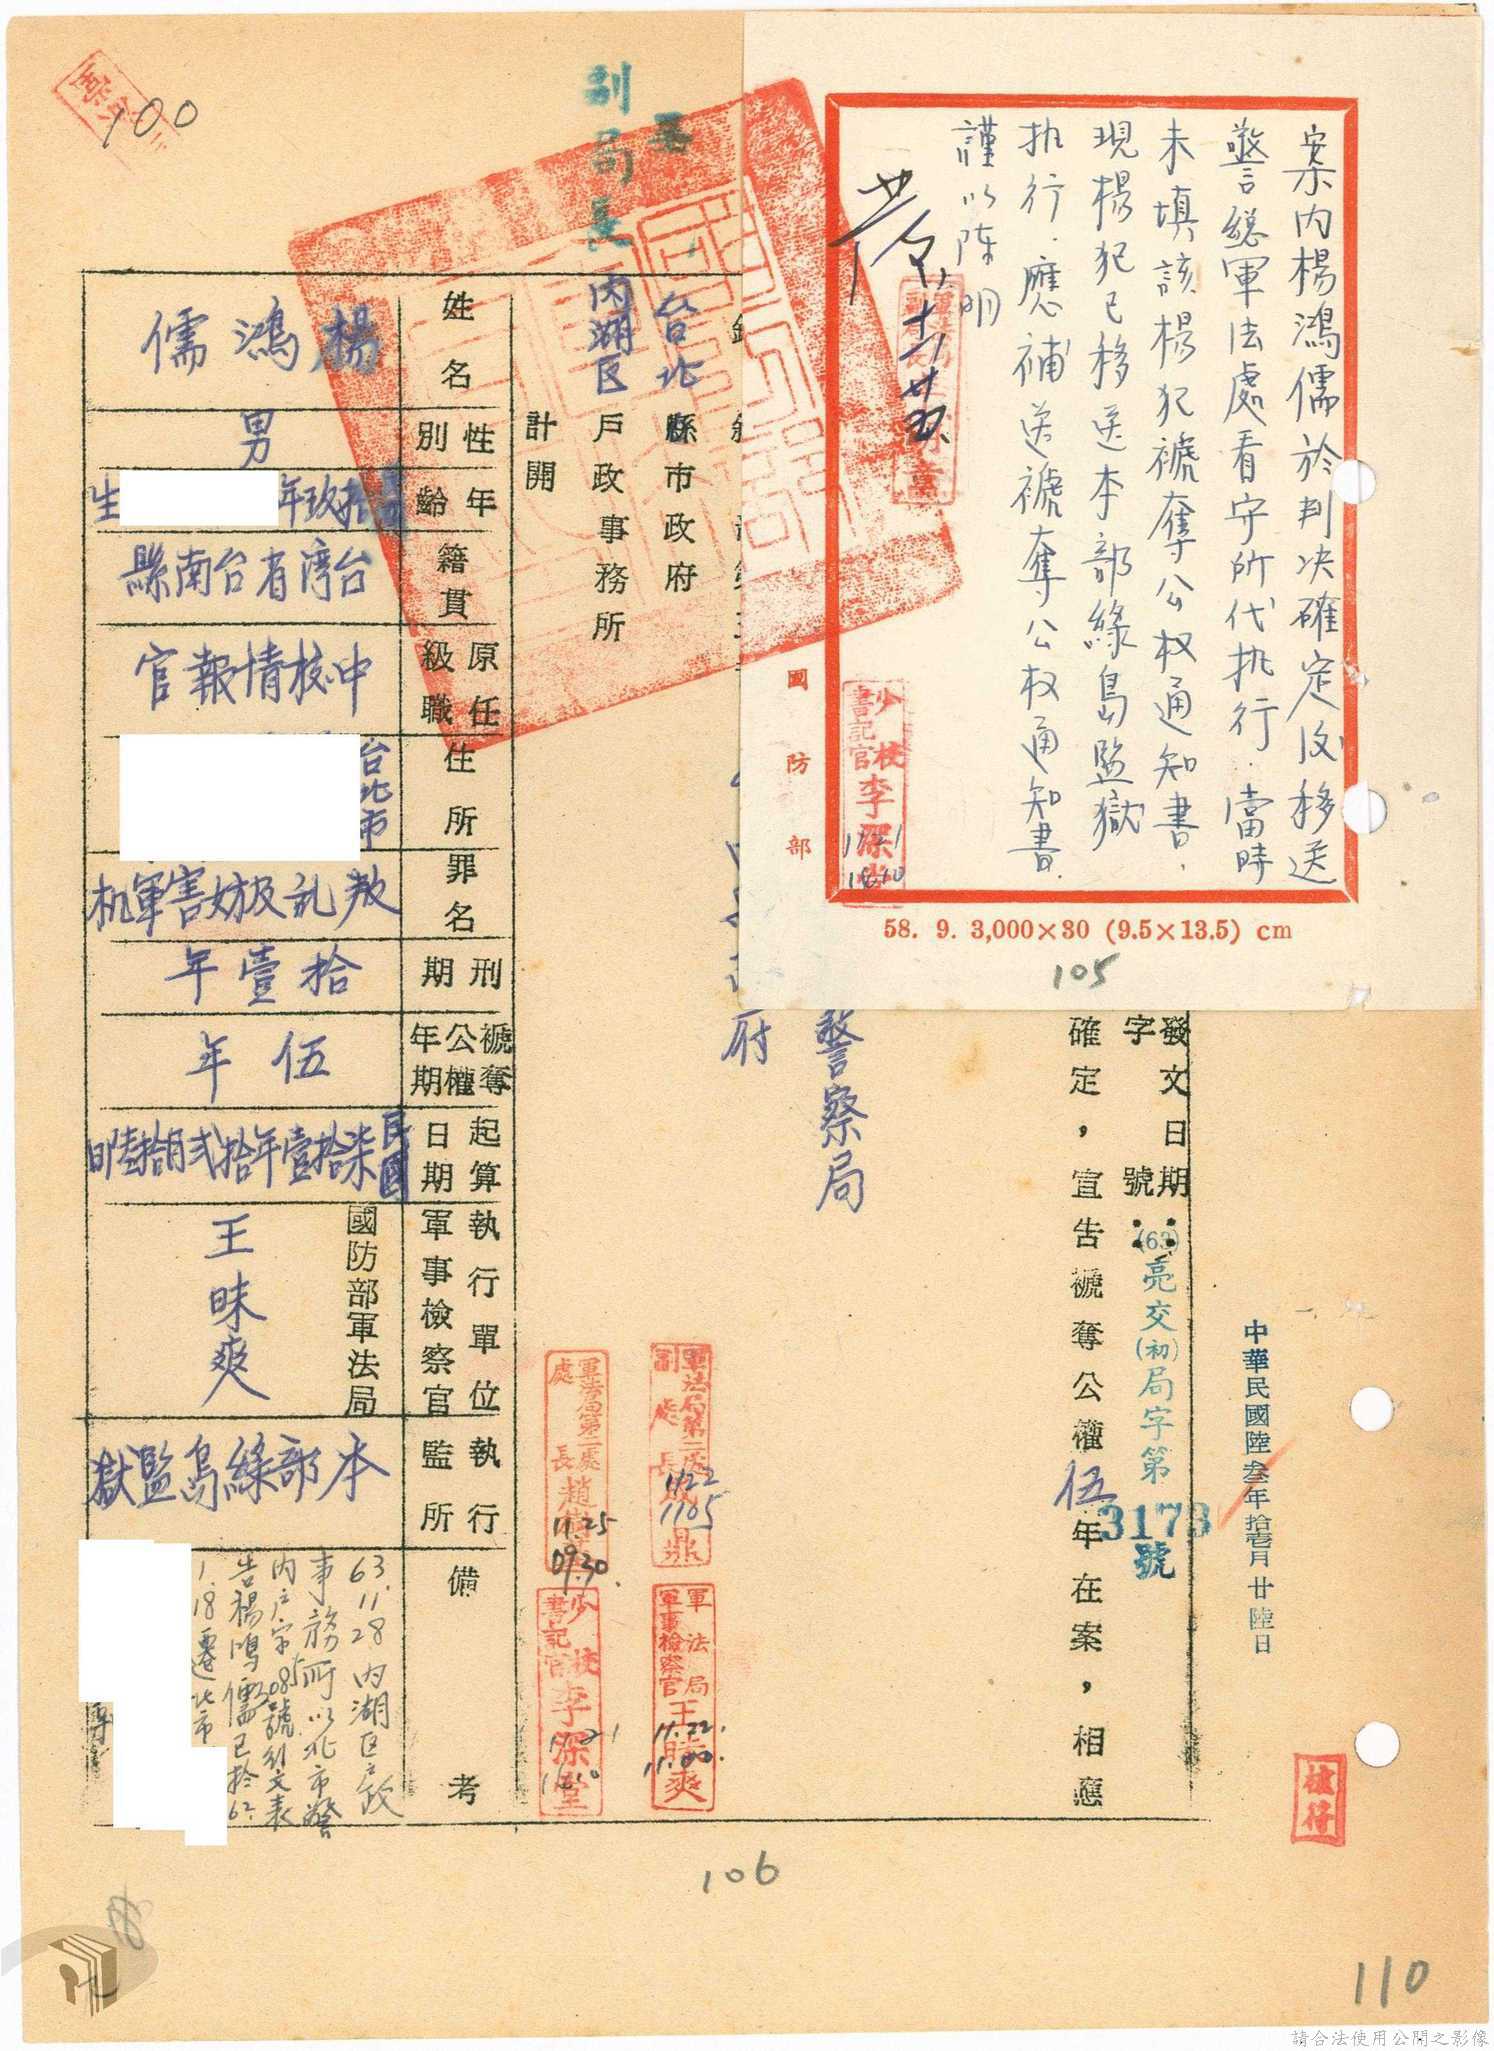 案內楊鴻儒於判决確定后移送
警總軍法處看守所代执行．當時
未填該楊犯褫奪公权通知書，
現楊犯已移送本部綠島監獄
执行．應補送褫奪公权通知書．
謹以陈明
國防部
少校書記官李深堂
58. 9. 3,000×30 (9.5×13.5) cm
105
100
中華民國陸叁年拾壹月廿陸日
發文日期：
字號：(63)亮交(初)局字第3173號
確定，宣告褫奪公權伍年在案，相應
警察局
府
台北縣市政府
內湖区戶政事務所
副局長
計開
姓名
楊鴻儒
性別
男
年齡
年生
籍貫
台湾省台南縣
原任級職
中校情報官
住所
台北市
罪名
叛乱及妨害軍机
刑期
拾壹年
褫奪公權年期
伍年
起算日期
民國柒拾壹年拾弍月拾陸日
執行單位軍事檢察官
國防部軍法局
王昧爽
執行監所
本部綠島監獄
備考
63.11.28內湖区户政
事務所以北市警
內户字2085號函文表
告楊鴻儒已於62.
1.18遷北市
軍法局第二處副處長成鼎
11.22
1105
軍法局第二處處長趙
11.25
09.30.
軍法局軍事檢察官王昧爽
11.22.
11.00.
少校書記官李深堂
校符
106
110
請合法使用公開之影像